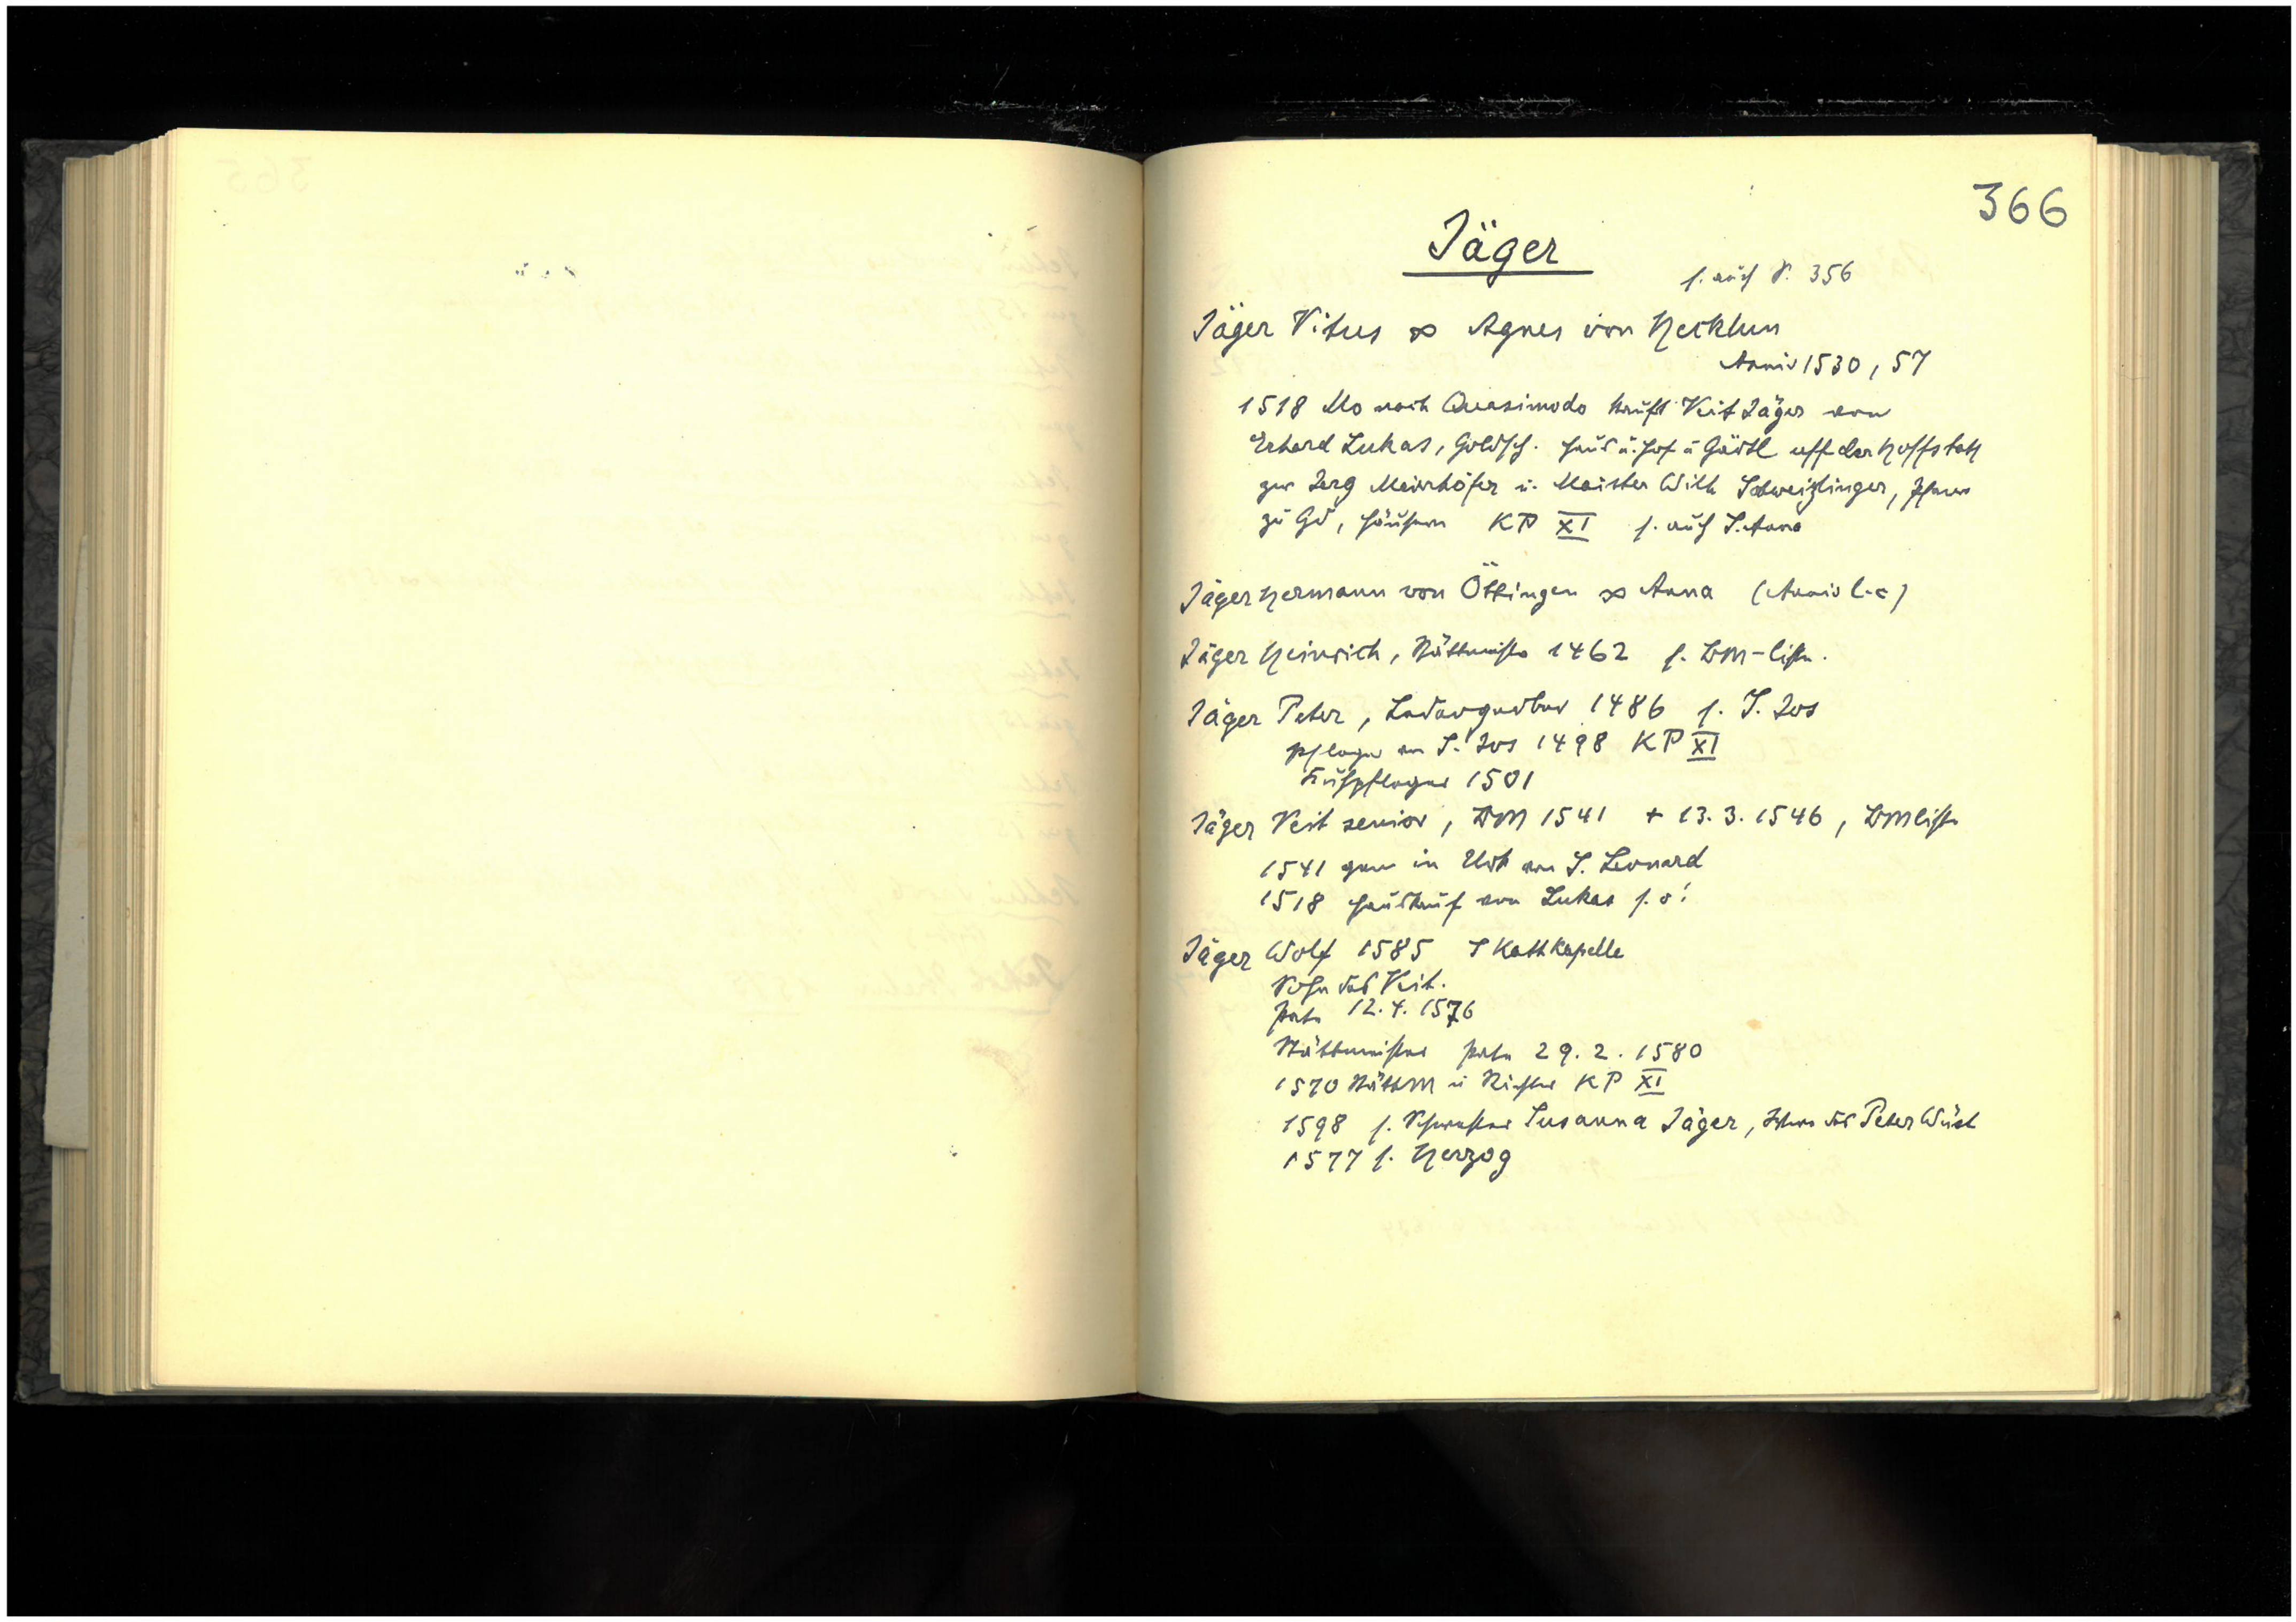 366
Jäger
s. auch S. 356
Jäger Vitus ∞ Agnes von Hecklin
Anniv 1530, 57
1518 Mo nach Quasimodo kauft Veit Jäger von
Erhard Lukas, Goldsch. Haus u. Hof u Gärtl uff der Hoffstatt
zw Jerg Meirhöfer u. Meister Wilh Schweizlinger, Pfarrer
zu Gd, Häusern KP XI s. auch S. Anna
Jäger Hermann von Öttingen ∞ Anna (Anniv l.c)
Jäger Heinrich, Stättmeister 1462 s. BM-liste.
Jäger Peter, Ledergerber 1486 s. S. Jos
Pfleger von S. Jos 1498 KP XI
1501
Jäger Veit senior, BM 1541 + 13.3.1546, BMliste
1541 gen in Urk von S. Leonard
1518 Hauskauf von Lukas s. o!
Jäger Wolf 1585 S Kathkapelle
Sohn des Veit.
Pate 12.4.1576
Stättmeister Pate 29.2.1580
1570 StättM u Richter KP XI
1598 s. Schwester Susanna Jäger, Witwe des Peter Wüst
1577 s. Herzog